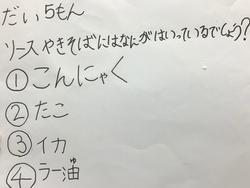 だい5もん
ソースやきそばにはなにがはいっているでしょう?
①こんにゃく
②たこ
③イカ
④ラー油
ゆ